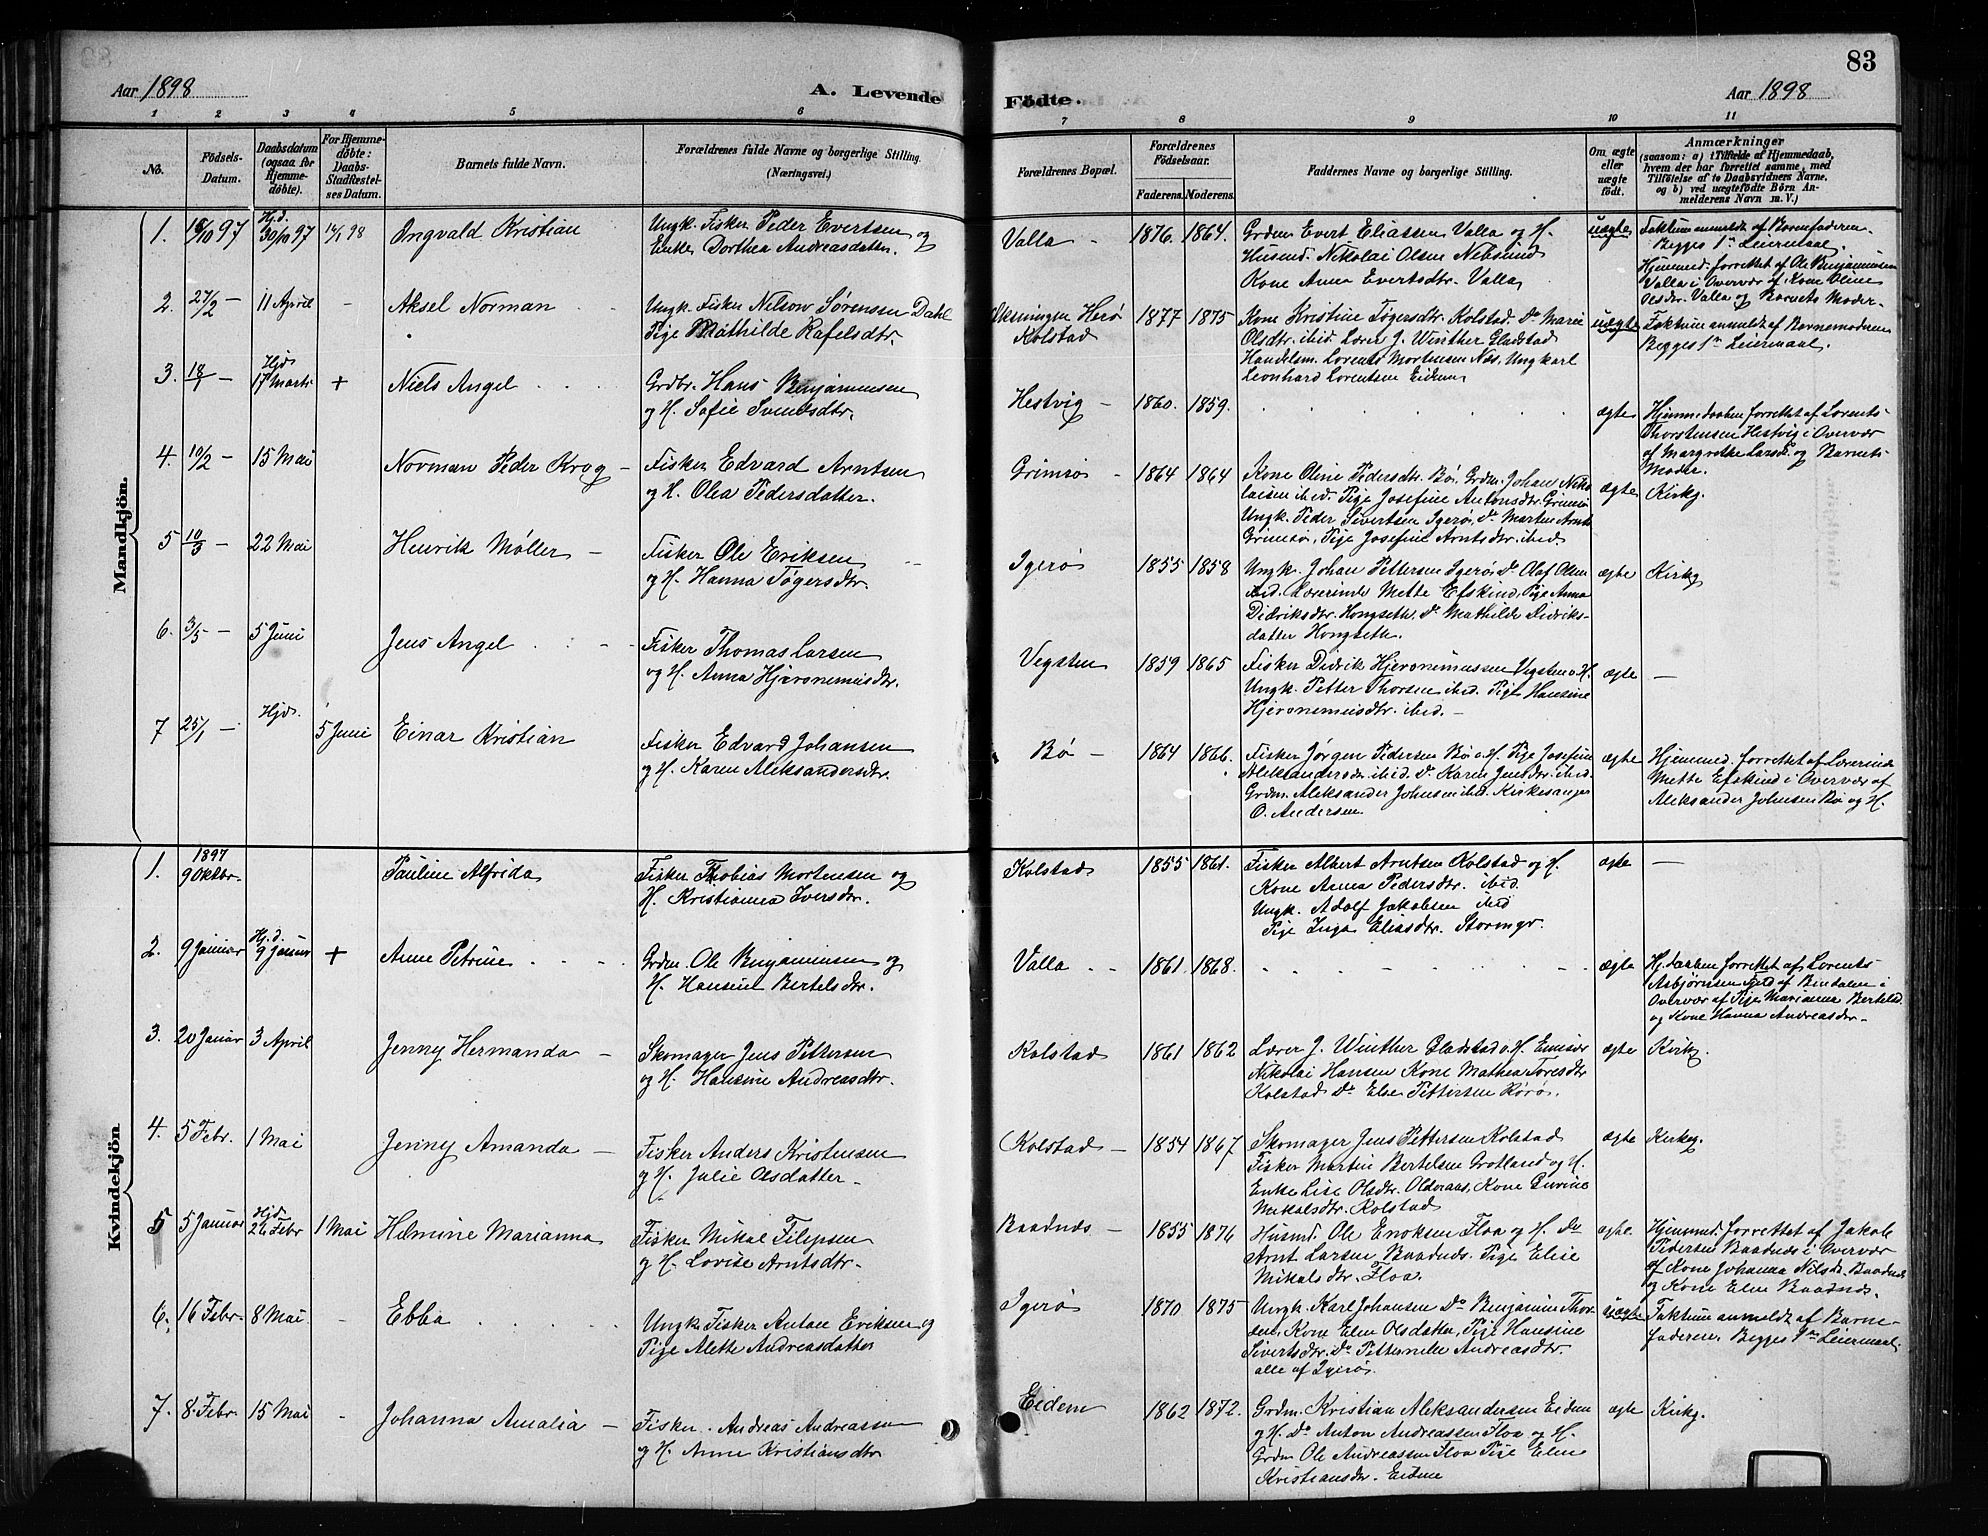 83
Aar 1898
A. Levende
Födte.
Aar 1898
1 2 3 4 5 6 7 8 9 10 11
No.
Födsels-Datum.
Daabsdatum (ogsaa för Hjemme-döbte).
For Hjemme-döbte: Daabs-Stadfæstel-ses Datum.
Barnets fulde Navn.
Forældrenes fulde Navne og borgerlige Stilling. (Næringsvei.)
Forældrenes Bopæl.
Forældrenes Födselsaar.
Faderens. Moderens.
Faddernes Navne og borgerlige Stilling.
Om ægte eller uægte födt.
Anmærkninger
(saasom: a) i Tilfælde af Hjemmedaab,
hvem der har forrettet samme, med
Tilföielse af to Daabsvidners Navne,
og b) ved uægtefödte Börn An-
melderens Navn m. V.)
Mandkjön.
1. 16/10 97 Hjd. 30/10 97 14/1 98 Ongvald Kristian
Ungk. Fisker Peder Evertsen og
Enke Dorthea Andreasdatter.
Valla - 1876. 1864.
Grdm Evert Eliassen Valla og H.
Husmd. Nikolai Olsen Nebsund
Kone Anna Evertsdtr. Valla
uægte
Faktum anmeldt af Barnefaderen.
Begges 1ste Leiermaal.
Hjemmed. forrettet af Ole Benjaminsen
Valla i Overvær af Kone Oline
Olsdtr. Valla og Barnets Moder-
2. 27/2 - 11 April - Aksel Norman
Ungk. Fisker Nelson Sørensen Dahl
Pige Mathilde Rafelsdtr.
Herø
Kolstad
1877 1875
Kone Kristine Tøgersdtr. Kolstad. Do Marie
Olsdtr. ibid. Lærer J. Winther Gladstad
Handelsm. Lorents Mortensen Næs, Ungkarl
Leonhard Lorentsen Eidem
uægte
Faktum anmeldt af Barnemoderen
Begges 1ste Leiermaal.
3. 18/1 - Hjd. 17 Marts + Niels Angel
Grdbr. Hans Benjaminsen
og H. Sofie Svendsdtr.
Hestvig - 1860. 1859.
ægte
Hjemmedaaben forrettet af Lorents
Thorstensen Hestvig i Overvær
af Margrethe Larsd. og Barnets
Moder.
4. 10/2 - 15 Mai Norman Peder Krog -
Fisker Edvard Arntsen
og H. Olea Pedersdatter.
Grimsø - 1864 1864
Kone Oline Pedersdtr. Bø, Grdm. Johan Niko
laisen ibid. Pige Josefine Antonsdtr. Grimsø
Ungk. Peder Sivertsen Igerø, Do Martin Arnts
Grimsø, Pige Josefine Arntsdtr. ibid.
ægte Kirkg.
5 10/3 - 22 Mai Henrik Møller -
Fisker Ole Eriksen
og H. Hanna Tøgersdtr.
Igerø 1855 1858
Ungk. Johan Pettersen Igerø, Do Olaf Olsen
ibid. Lærerinde Mette Efskind, Pige Anna
Didriksdtr. Hongseth. Do Mathilde Didriks-
datter Hongseth.
ægte Kirkg
6. 3/5 - 5 Juni Jens Angel
Fisker Thomas Larsen
og H. Anna Hjeronemusdtr.
Vegsten 1859 1865
Fisker Didrik Hjeronimussen Vegsten o H.
Ungk. Petter Thorsen ibid. Pige Hansine
Hjeronemusdtr. ibid. -
ægte -
7 25/1 - Hjd. 5 Juni Einar Kristian
Fisker Edvard Johansen
og H. Karen Aleksandersdtr.
Bø - 1864 1866.
Fisker Jørgen Pedersen Bø o H. Pige Josefine
Aleksandersdtr ibid. Do Karen Jensdtr. ibid.
Grdm. Aleksander Johnsen ibid. Kirkesanger
O. Andersen.
ægte
Hjemmed. forrettet af Lærerinde
Mette Efskind i Overvær af
Aleksander Johnsen Bø og H.
Kvindekjön
1. 1897 9 Oktbr. Pauline Alfrida
Fisker Thobias Mortensen og
H. Kristianna Iversdtr.
Kolstad 1855 1861.
Fisker Albert Arntsen Kolstad og H.
Kone Anna Pedersdtr. ibid.
Ungk. Adolf Jakobsen ibid
Pige Inga Eliasdtr. Stormgr.
ægte -
2. 9 Januar Hj.d. 9 Januar + Anne Petrine
Grdm. Ole Benjaminsen og
H. Hansine Bertelsdtr.
Valla 1861. 1868.
ægte
Hj.daaben forrettet af Lorents
Asbjørnsen Fjeld af Bindalen i
Overvær af Pige Marianna Bertelsd
og Kone Hanna Andreasdtr.
3. 20 Januar 3 April Jenny Hermanda -
Skomager Jens Pettersen
og H. Hansine Andreasdtr.
Kolstad 1861 1862
Lærer J. Winther Gladstad o. H.
Nikolai Hansen Kone Mathea Toresdtr
Kolstad Do Else Pettersen Rørø.
ægte Kirkg.
4. 5 Febr. 1 Mai Jenny Amanda -
Fisker Anders Kristensen
og H. Julie Olsdatter -
Kolstad - 1854 1867
Skomager Jens Pettersen Kolstad
Fisker Martin Bertelsen Grotland og H.
Enke Lise Olsdtr. Kone Gurine
Mikalsdtr. Kolstad
ægte Kirkeg.
5 5 Januar Hjd. 26 Febr 1 Mai Helmine Marianna
Fisker Mikal Filipsen
og H. Lovise Arntsdtr.
Baadnæs - 1855 1876
Husmd. Ole Enoksen Floa og H. Do
Arnt Larsen Baadnæs. Pige Elise
Mikalsdtr. Floa.
ægte
Hjemmed. forrettet af Jakob
Pedersen Baadnæs i Overvær
af Kone Johanna Nilsd. Baadnæs
og Kone Elen Baadnæs.
6. 16 Febr. 8 Mai. - Ebba
Ungk. Fisker Anton Eriksen og
Pige Alette Andreasdatter
Igerø 1870 1875
Ungk. Karl Johansen Do Benjamin Thor
Kone Elen Olsdatter, Pige Hansine
Sivertsdtr. Do Petternelle Andreasdtr.
alle af Igerø.
uægte
Faktum anmeldt af Barne-
faderen. Begges 1ste Leiermaal.
7. 8. Febr. 15 Mai - Johanna Amalia -
Fisker. Andreas Andreassen
og H. Anne Kristiansdtr
Eidem 1862 1872.
Grdm. Kristian Aleksandersen Eidem
og H. Do Anton Andreassen Floa og H.
Grdm Ole Andreassen Floa Pige Elen
Kristiansdtr. Eidem
ægte Kirkg.